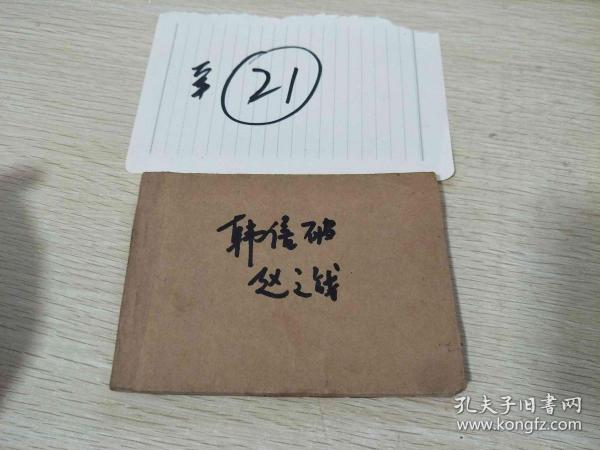 ㉑
韩信破
赵之战
孔夫子旧書网
www.kongfz.com